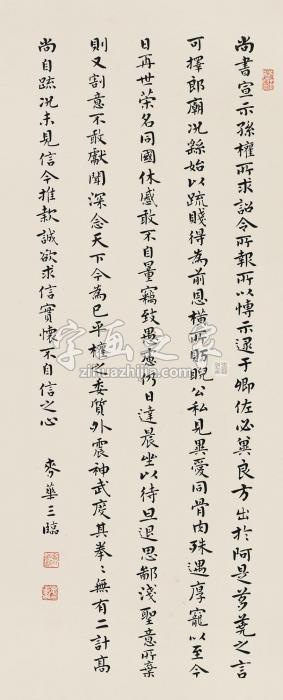 尚書宣示孫權所求詔令所報所以博示逮于卿佐必冀良方出於阿是芻蕘之言
可擇郎廟況繇始以疏賤得為前恩橫所盻睨公私見異愛同骨肉殊遇厚寵以至今
日再世榮名同國休慼敢不自量竊致愚慮仍日達晨坐以待旦退思鄙淺聖意所棄
則又割意不敢獻聞深念天下今為已平權之委質外震神武度其拳〻無有二計高
尚自疏況未見信今推款誠欲求信實懷不自信之心
麥華三臨
字画之家
zihuazhijia.com